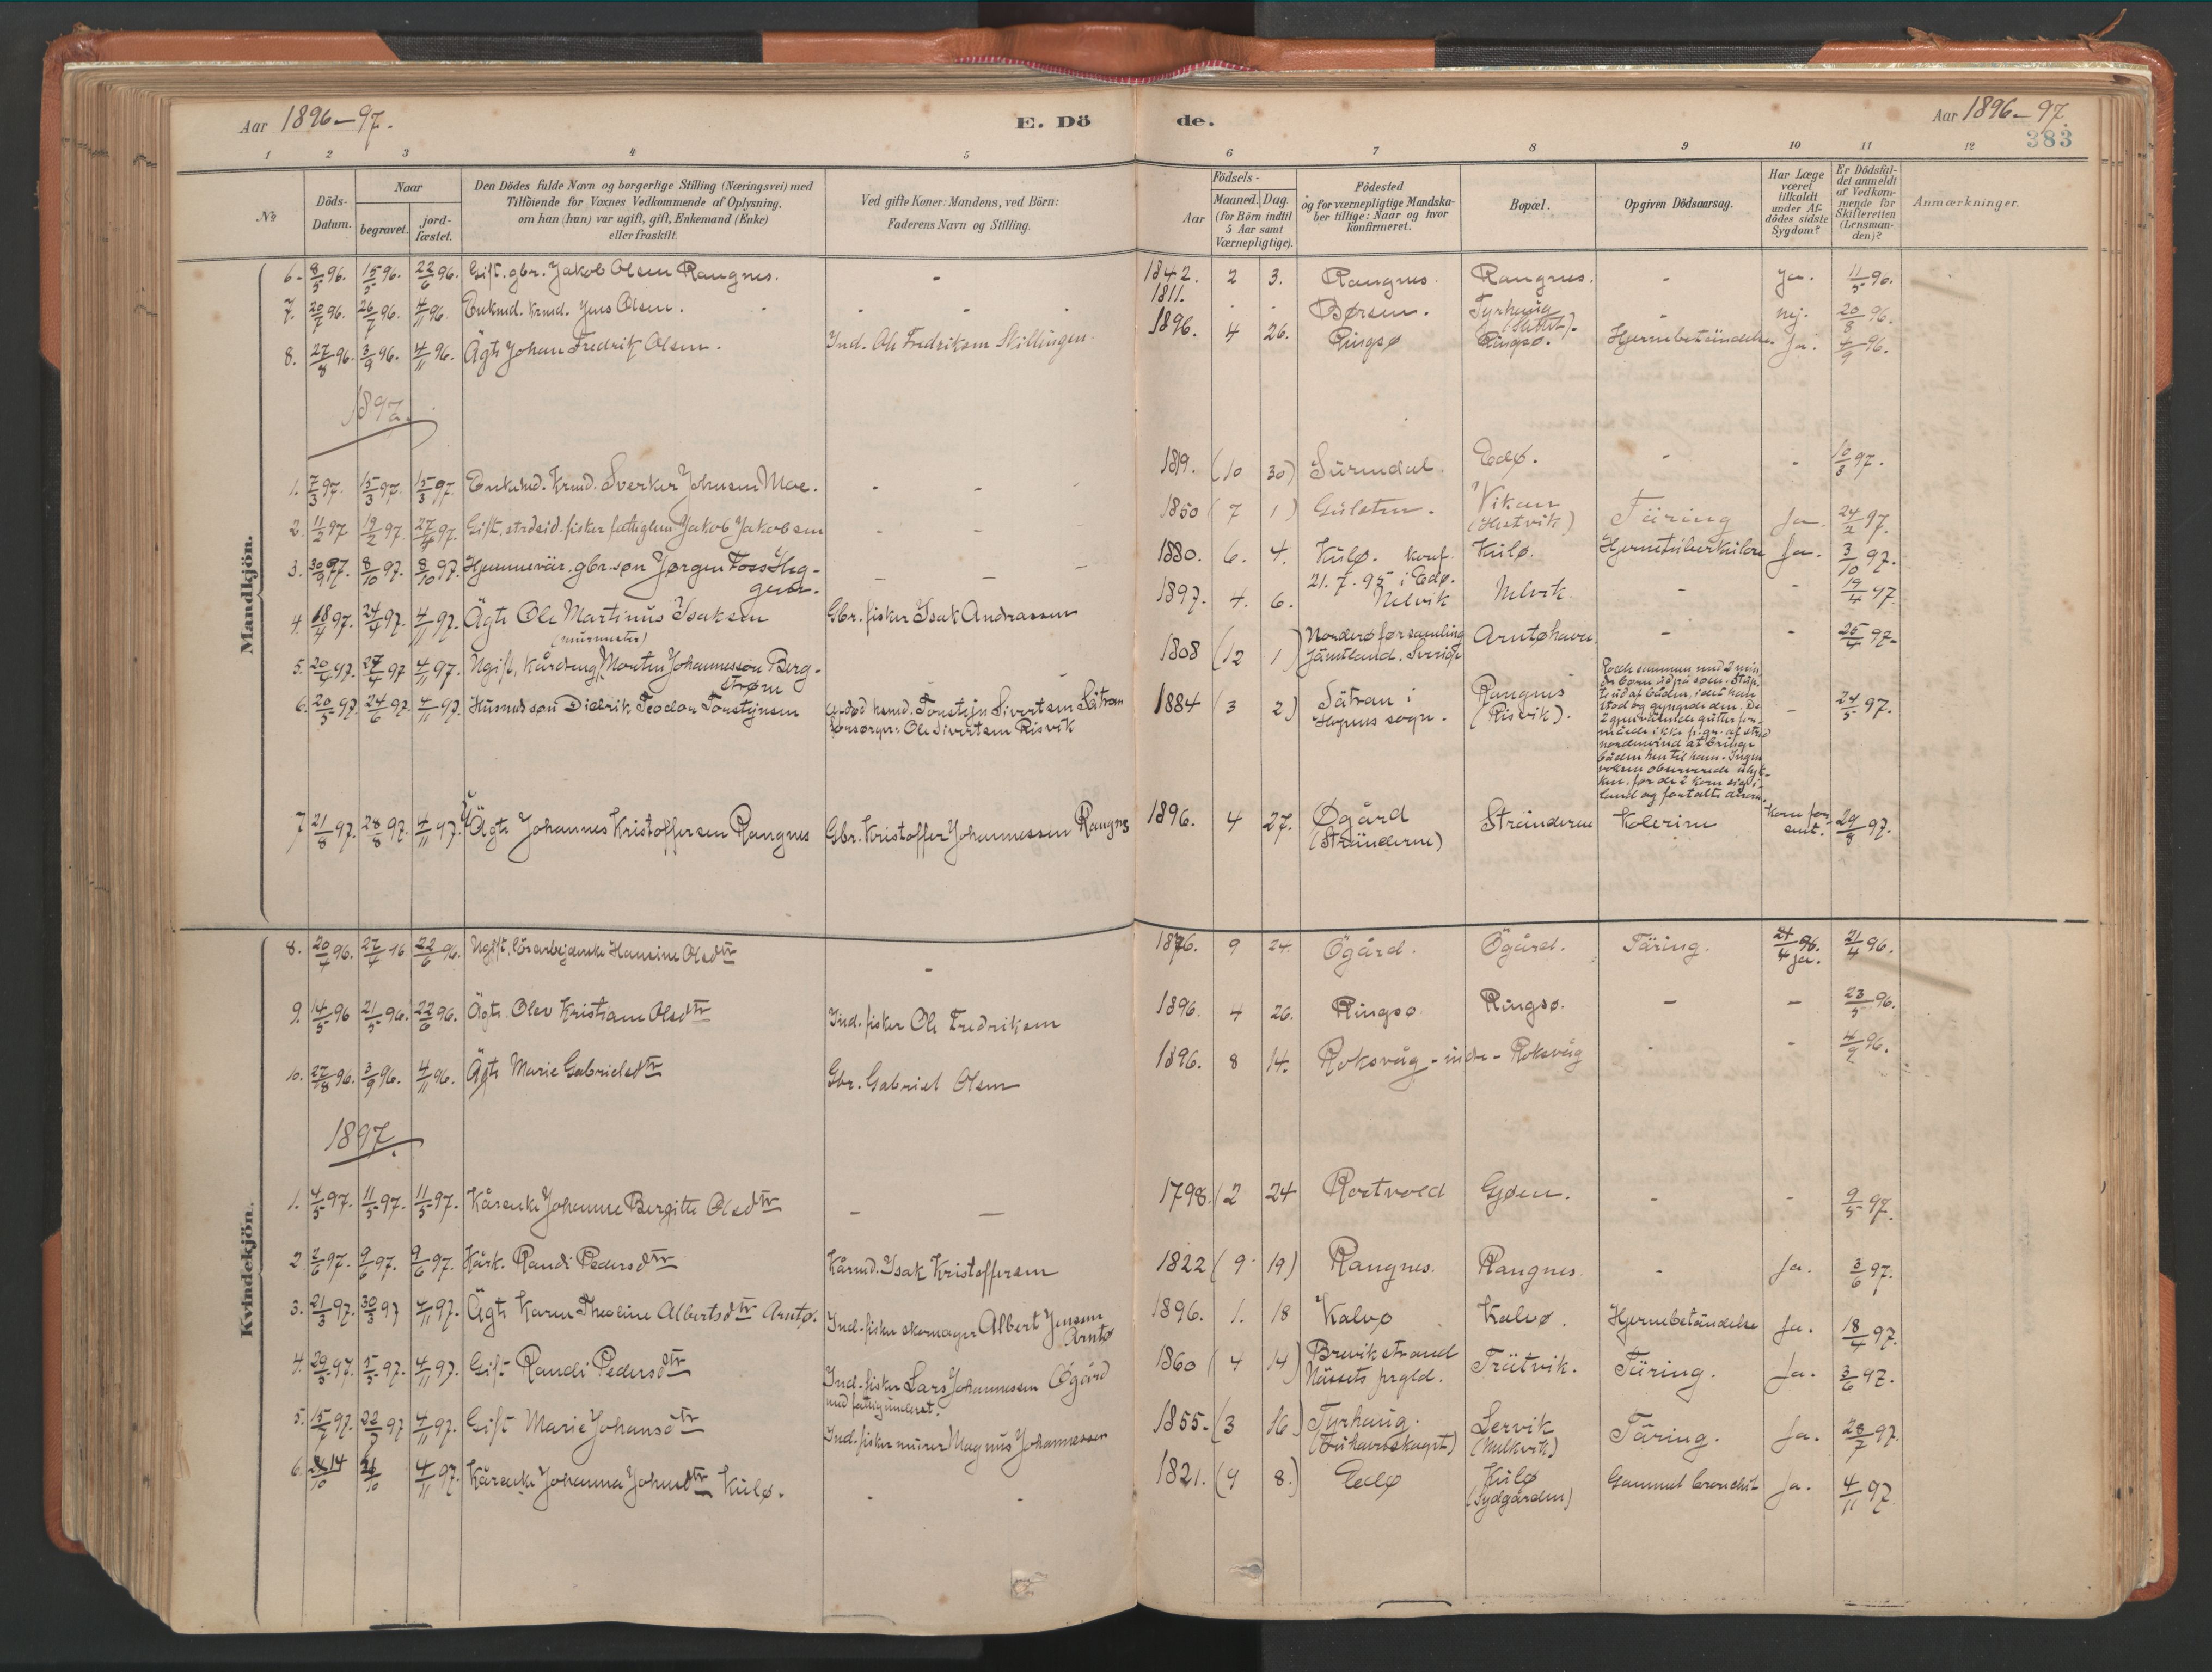 Aar 1896-97.
E. Dö
de.
Aar 1896-97.
383
1 2 3 4 5 6 7 8 9 10 11 12
No
Döds-Datum.
Naar
begravet.
jord-fæstet.
Den Dödes fulde Navn og borgerlige Stilling (Næringsvei) med
Tilföiende for Voxnes Vedkommende af Oplysning,
om han (hun) var ugift, gift, Enkemand (Enke)
eller fraskilt.
Ved gifte Koner: Mandens, ved Börn:
Faderens Navn og Stilling.
Födsels-
Aar
Maaned. Dag.
(for Börn indtil
5 Aar samt
Værnepligtige).
Födested
og for værnepligtige Mandska-
ber tillige: Naar og hvor
konfirmeret.
Bopæl.
Opgiven Dödsaarsag.
Har Læge
været
tilkaldt
under Af-
dödes sidste
Sygdom?
Er Dödsfal-
det anmeldt
af Vedkom-
mende for
Skifteretten
(Lensman-
den)?
Anmærkninger.
Mandkjön.
6. 8/5 96. 15/5 96. 22/6 96. Gift. gbr. Jakob Olsen Rangnes. - 1842. 2 3. Rangnes. Rangnes. - Ja. 11/5 96.
7. 20/7 96. 26/7 96. 4/11 96. Enkmd. kmd. Jens Olsen. - 1811. - - Børsen. Tyrhaug - nej. 20/8 96.
8. 27/8 96. 3/9 96. 4/11 96. Ägte Johan Fredrik Olsen. Ind. Ole Fredriksen Skillingen. 1896. 4 26. Ringsø Ringsø. Hjernebetændelse Ja. 4/9 96.
1897.
1. 7/3 97. 15/3 97. 15/3 97. Enkemd. Krmd. Sverker Johnsen Moe. - - 1819. (10 30) Surendal Edø. - - 10/3 97.
2. 11/2 97 19/2 97 27/4 97. Gift, strdsid. fisker fattiglem Jakob Jakobsen - - 1850 (7 1) Gulsten. Vikan
(Hestvik) Täring Ja. 24/2 97.
3. 30/9 97. 8/10 97. 8/10 97. Hjemmevär. gbr.søn Jørgen Foss Heg-
gen. - - 1880. 6. 4. Kulø. konf.
21.7.95 i Edø. Kulø. Hjernetuberkulose Ja. 3/10 97.
4. 18/4 97. 24/4 97. 4/11 97. Ägte Ole Martinus Isaksen Gbr. fisker Isak Andrassen 1897. 4. 6. Nelvik Nelvik. - - 19/4 97.
5. 20/4 97. 27/4 97 4/11 97. Ugift, Kårdreng (murmester) Morten Johannesson Berg-
strøm - 1808 (12 1) Norderø forsamling
Jämtland. Sverige Arntøhavn. - - 25/4 97.
6. 20/5 97. 24/6 97. 4/11 97. Husmdssøn Didrik Teodor Torsteinsen afdød husmd. Torstejn Sivertsen Sätran
forsørger: Ole Sivertsen Risvik 1884 (3 2) Sätran i
Hopens sogn. Rangnes
(Risvik). Rodde sammen med 2 min
dre børn ud på søen. Stup-
te ud af båden, idet han
stod og gyngede den. De
2 gjenværende gutter for-
måede ikke p. gr. af stred
nordenvind at bringe
båden hen til ham. Ingen
voksen observerede ulyk-
ken, før de 2 kom sig i
land og fortalte derom. - 24/5 97.
7. 21/8 97. 28/8 97. 4/11 97. Ägte Johannes Kristoffersen Rangnes Gbr. Kristoffer Johannessen Rangnes 1896. 4 27. Øgård
(Stränderne) Stränderne Kolerine kom for
sent. 29/8 97.
Kvindekjön.
8. 20/4 96. 27/4 96 22/6 96. Ugift, lösarbejderske Hansine Olsdtr - 1876. 9 24. Ögård. Ögård. Täring. 21/4 96.
Ja. 21/4 96.
9. 14/5 96 21/5 96. 22/6 96. Ägte. Olev Kristiane Olsdtr Ind. fisker Ole Fredriksen 1896. 4 26. Ringsø Ringsø. - - 23/5 96.
10. 27/8 96. 3/9 96. 4/11 96. Ägte Marie Gabrielsdtr Gbr. Gabriel Olsen 1896. 8 14. Roksvåg - indre - Roksvåg - - 4/9 96.
1897.
1. 4/5 97. 11/5 97. 11/5 97. Kårenke Johanne Bergitte Olsdtr - - 1798. (2 24 Rostvold Gjøen. - - 9/5 97.
2. 2/6 97. 9/6 97. 9/6 97. Kårk. Randi Pedersdtr Kårmd. Isak Kristoffersen 1822 (9 19) Rangnes. Rangnes - Ja. 3/6 97.
3. 21/3 97. 30/3 97 4/11 97. Ägte Karen Theoline Albertsdtr Arntø. Ind. fisker skomager Albert Jensen
Arntø 1896. 1. 18 Kalvø Kalvø. Hjernebetändelse Ja. 18/4 97.
4. 29/5 97. 5/5 97. 4/11 97. Gift Randi Pedersdtr Ind. fisker Lars Johannessen Øgård
med fattigunderst. 1860 (4 14) Brevikstrand
Nässets prgld. Trätvik. Täring. Ja. 3/6 97.
5. 15/7 97. 22/7 97 4/11 97. Gift Marie Johansdtr Ind. fisker murer Magnus Johannessen 1855. (3 16) Tyrhaug. Lervik Täring. Ja. 28/7 97.
6. 14/10 21/10 4/11 97. Kårenke Johanna Johnsdtr Kulø. - - 1821. (9 8.) Edø Kulø
(Sydgården) Gammel bronchit Ja. 4/11 97